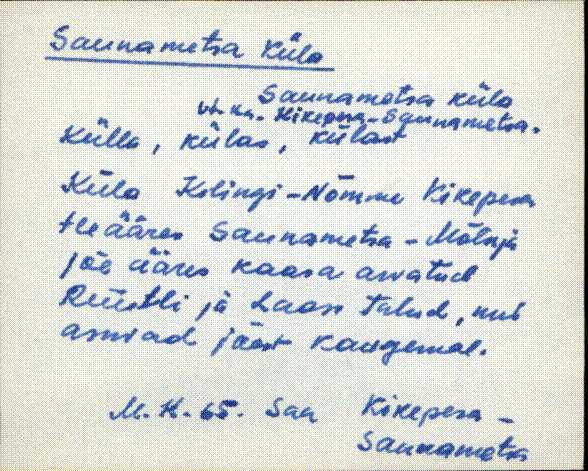 Saunametsa küla
Saunametsa küla
vt. ka. Kikepera-Saunametsa.
Külla, külas, külast
Küla Kilingi-Nõmme Kikepera
tee ääres Saunametsa-
jõe ääres kaasa arvatud
ja Laose talud, mis
asuvad jõest kaugemal.
M. K. 65. Saa Kikepera -
Saunametsa